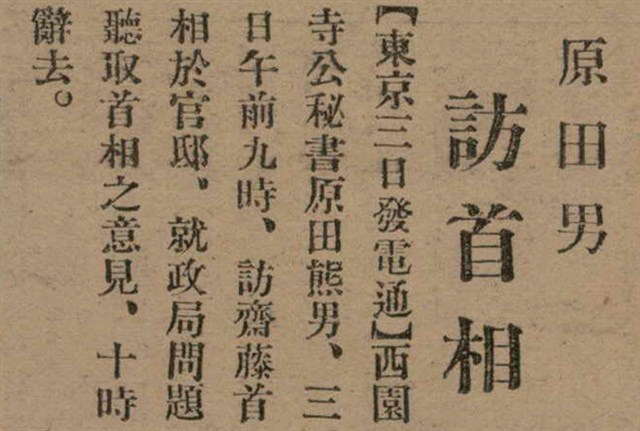 原田男
訪首相
【東京三日發電通】西園
寺公秘書原田熊男、三
日午前九時、訪齋藤首
相於官邸、就政局問題
聽取首相之意見、十時
辭去。